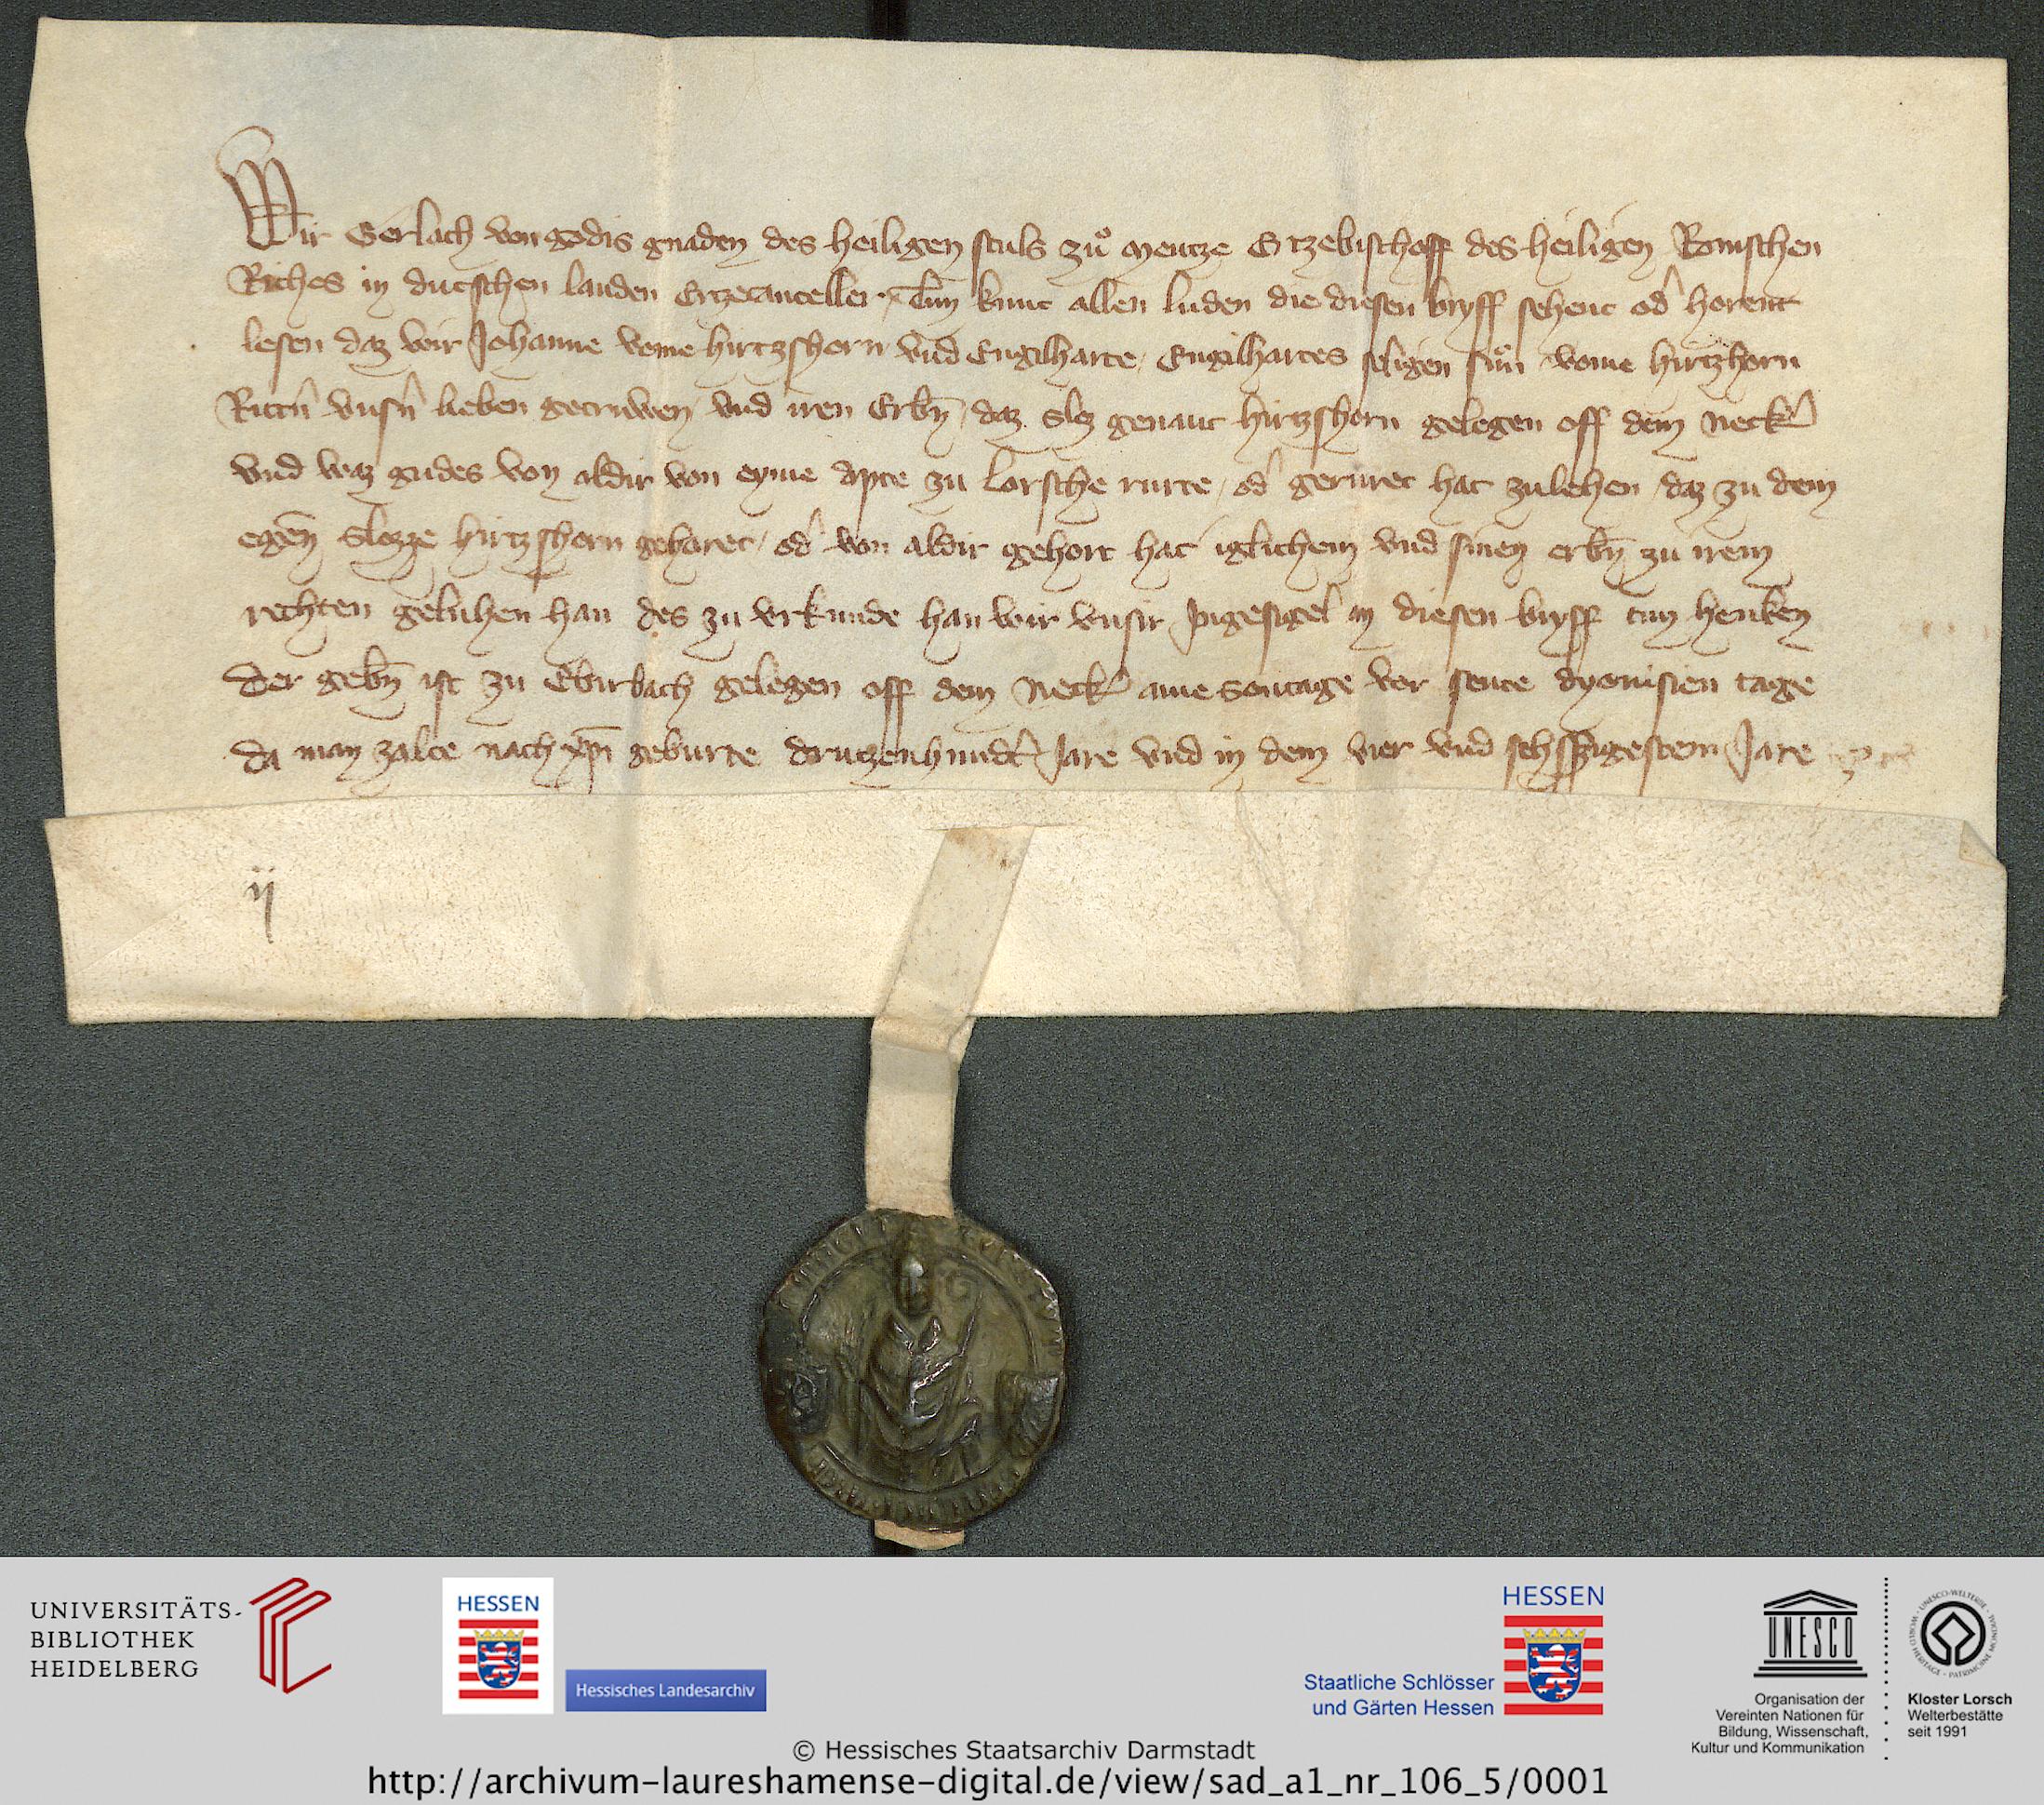 Wir Gerlach von godis gnaden des heiligen stuls zuͦ Mentze Ertzebischoff des heiligen Romschen
Riches in dutschen landen Ertzecanceller · Tun kunt allen luden die diesen bryff sehent od' horent
lesen daz wir Johanne vome hirtzshorn vnd Engilharte / Engilhartes seligen suͦn vome hirtzhorn
Rittn' vnsn' lieben getruwen / vnd iren Erbn̄ / daz Sloz genant hirtzshorn gelegen off dem Neck'
vnd waz gudes von aldir von eyme Apte zu Lorsche rurte / od' geruret hat zulehen / daz zu dem
egen̄ Slozze hirtzshorn gehoret / od' von aldir gehort hat iglichem vnd sinen erbn̄ zu irem
rechten geluhen han des zu vrkunde han wir vnsir Jngesigel in diesen bryff tun henken
Der gebn̄ ist zu Ebirbach gelegen off dem Neck' ame Sontage vor sente dyonisien tage
da man zalte nach xp̄i geburte drutzenhundt' Jare vnd in dem vier vnd sehsszigestem Jare
ij
UNIVERSITÄTS-
BIBLIOTHEK
HEIDELBERG
HESSEN
Hessisches Landesarchiv
HESSEN
Staatliche Schlösser
und Gärten Hessen
UNESCO
Organisation der
Vereinten Nationen für
Bildung, Wissenschaft,
Kultur und Kommunikation
WORLD HERITAGE · PATRIMOINE MONDIAL
Kloster Lorsch
Welterbestätte
seit 1991
© Hessisches Staatsarchiv Darmstadt
http://archivum-laureshamense-digital.de/view/sad_a1_nr_106_5/0001